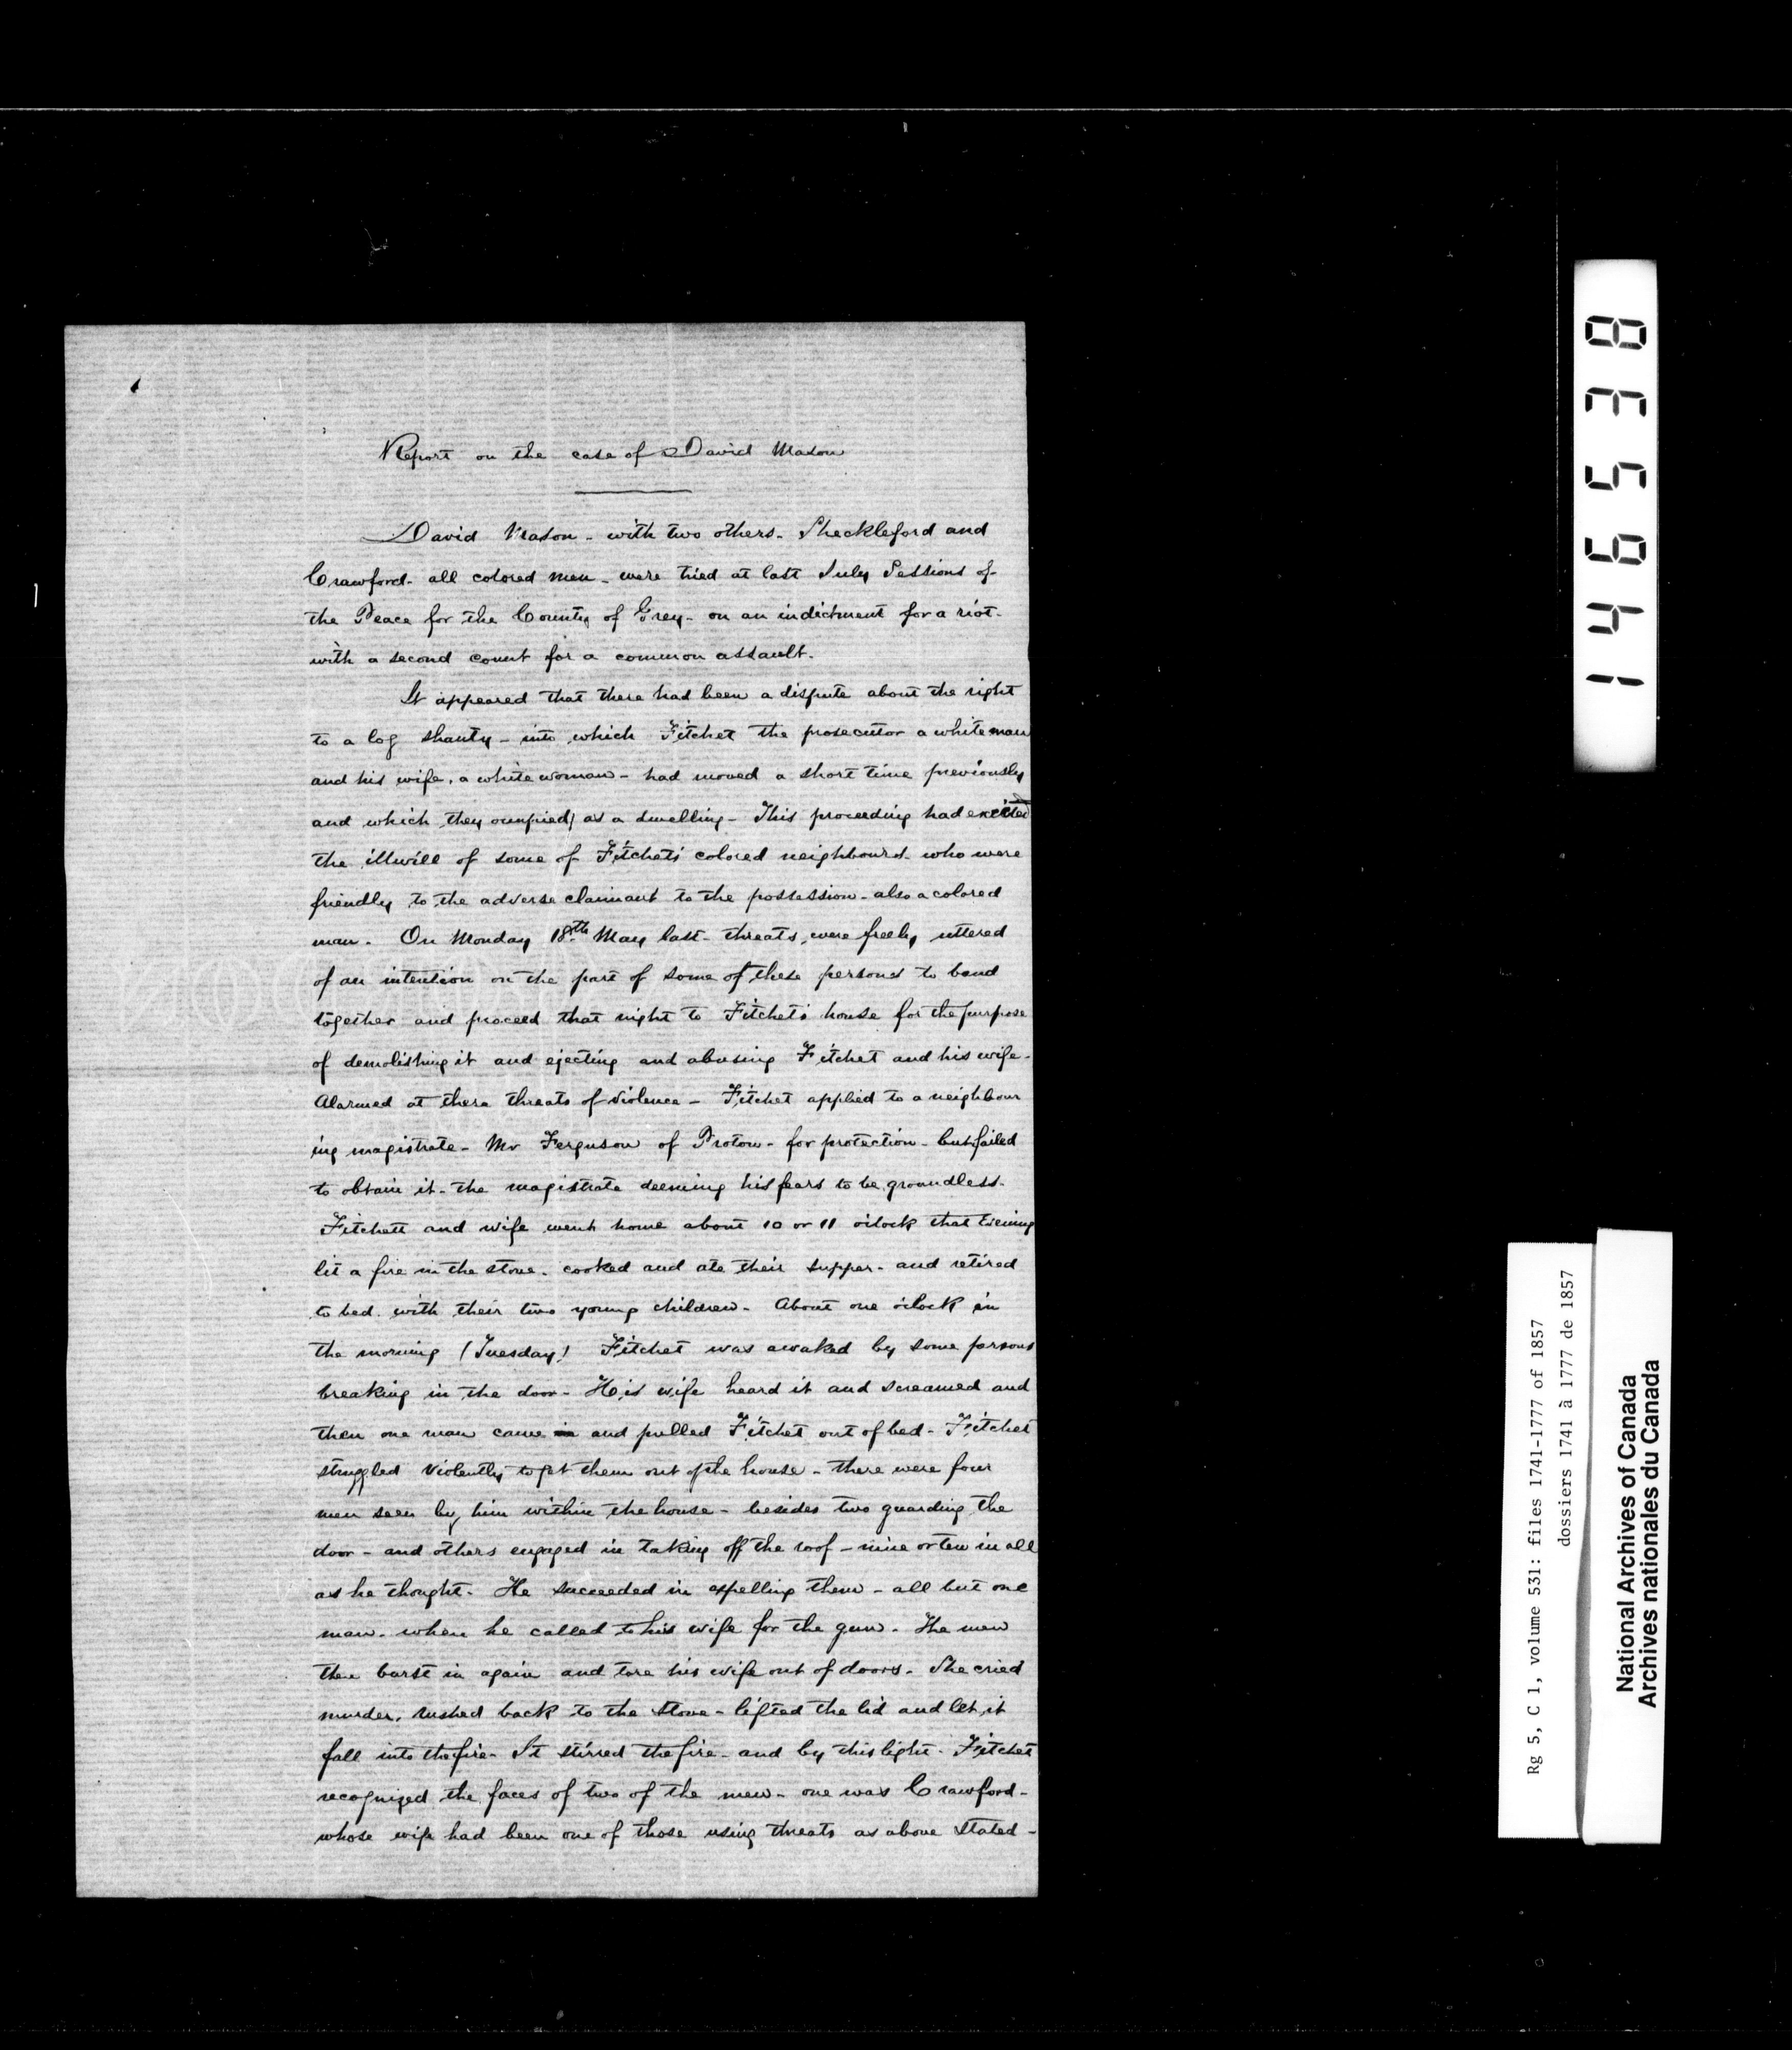 Report on the case of David Mason
David Mason - with two others - Sheckleford and
Crawford - all colored men - were tried at last July Sessions of
the Peace for the County of Grey - on an indictment for a riot -
with a second count for a common assault.
It appeared that there had been a dispute about the right
to a log shanty - into which Fitchet the prosecutor a white man
and his wife, a white woman - had moved a short time previously
and which they occupied as a dwelling - This proceeding had excited
the illwill of some of Fitchets colored neighbours - who were
friendly to the adverse claimant to the possession - also a colored
man. On Monday 18th May last - threats were freely uttered
of an intention on the part of some of these persons to band
together and proceed that night to Fitchet's house for the purpose
of demolishing it and ejecting and abusing Fitchet and his wife -
Alarmed at these threats of violence - Fitchet applied to a neighbour
ing magistrate - Mr Ferguson of Proton - for protection - but failed
to obtain it - the magistrate deeming his fears to be groundless.
Fitchett and wife went home about 10 or 11 o'clock that Evening
lit a fire in the stove - cooked and ate their supper - and retired
to bed with their two young children - About one o'clock in
the morning (Tuesday) Fitchet was awaked by some persons
breaking in the door - His wife heard it and screamed and
then one man came and pulled Fitchet out of bed - Fitchet
struggled violently to get them out of the house - there were four
men seen by him within the house - besides two guarding the
door - and others engaged in taking off the roof - nine or ten in all
as he thought. He succeeded in expelling them - all but one
man - when he called to his wife for the gun. The men
then burst in again and tore his wife out of doors. She cried
murder, rushed back to the stove - lifted the lid and let it
fall into the fire - It stirred the fire - and by this light - Fitchet
recognized the faces of two of the men - one was Crawford -
whose wife had been one of those using threats as above stated -
146538
Rg 5, C 1, volume 531: files 1741-1777 of 1857
dossiers 1741 à 1777 de 1857
National Archives of Canada
Archives nationales du Canada